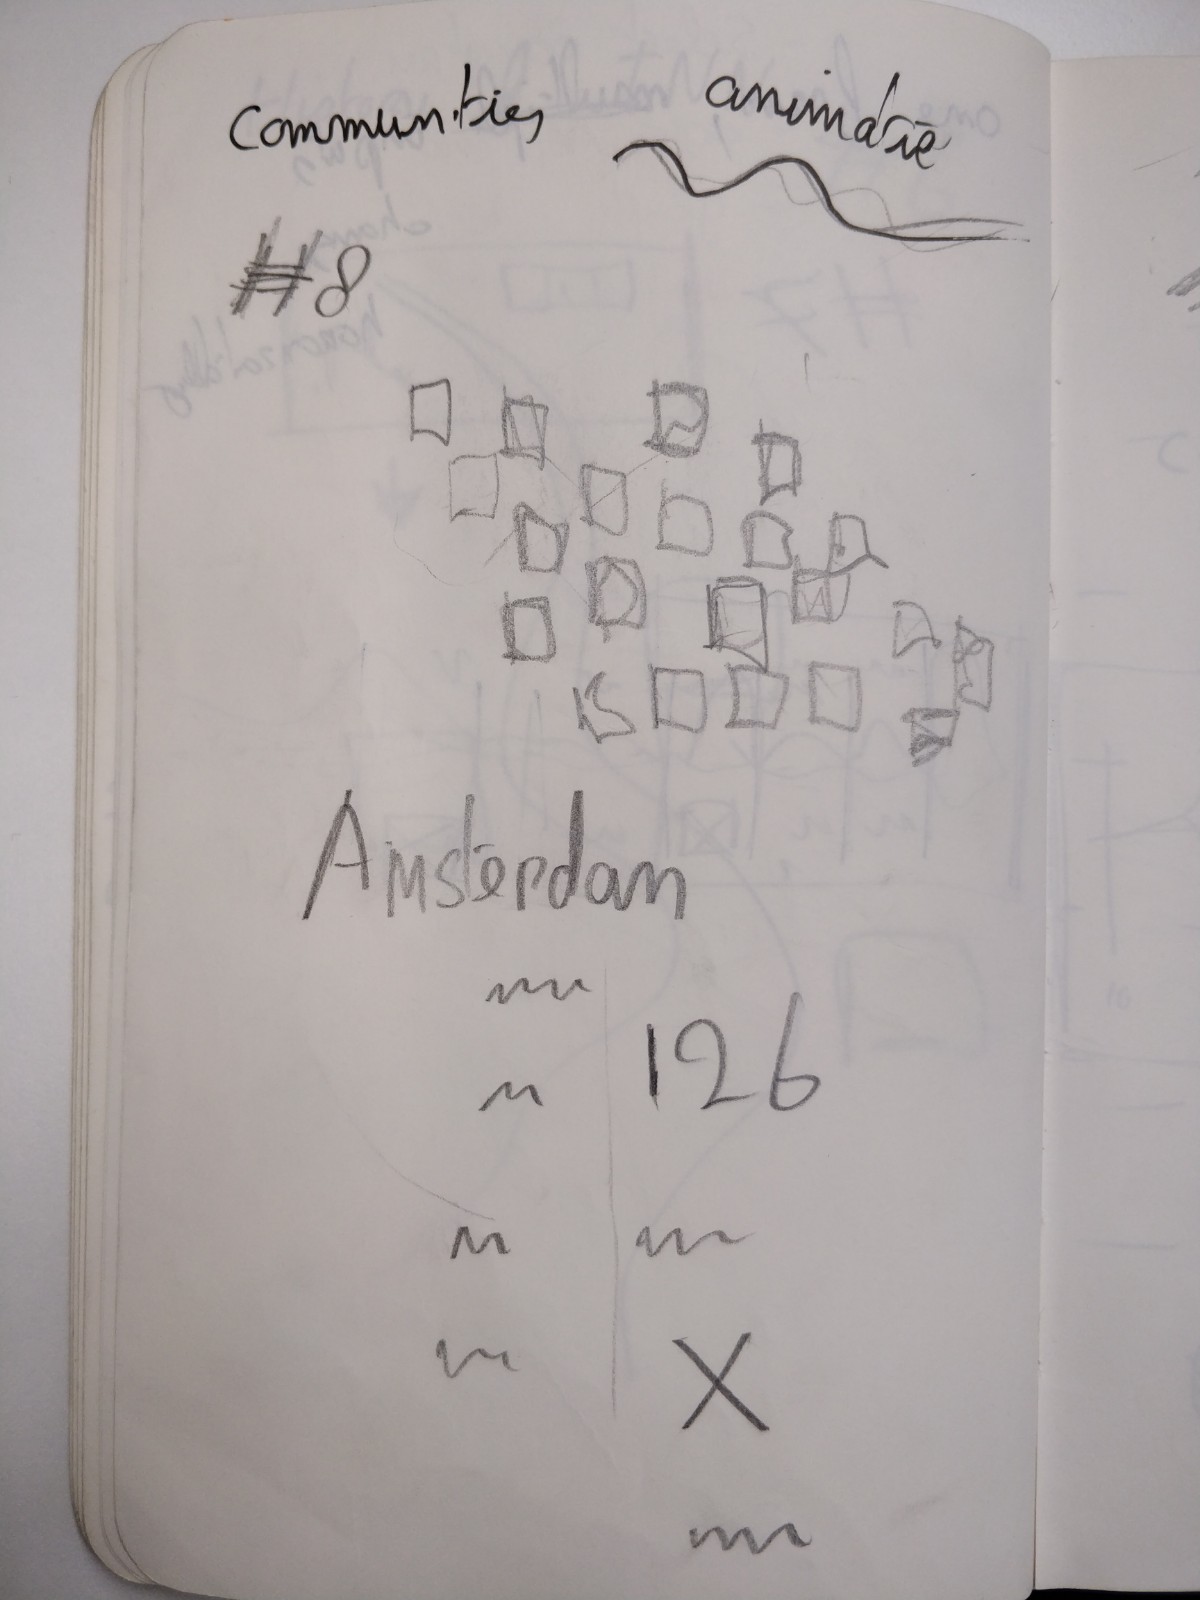 communities animatie
#8
Amsterdam
126
X